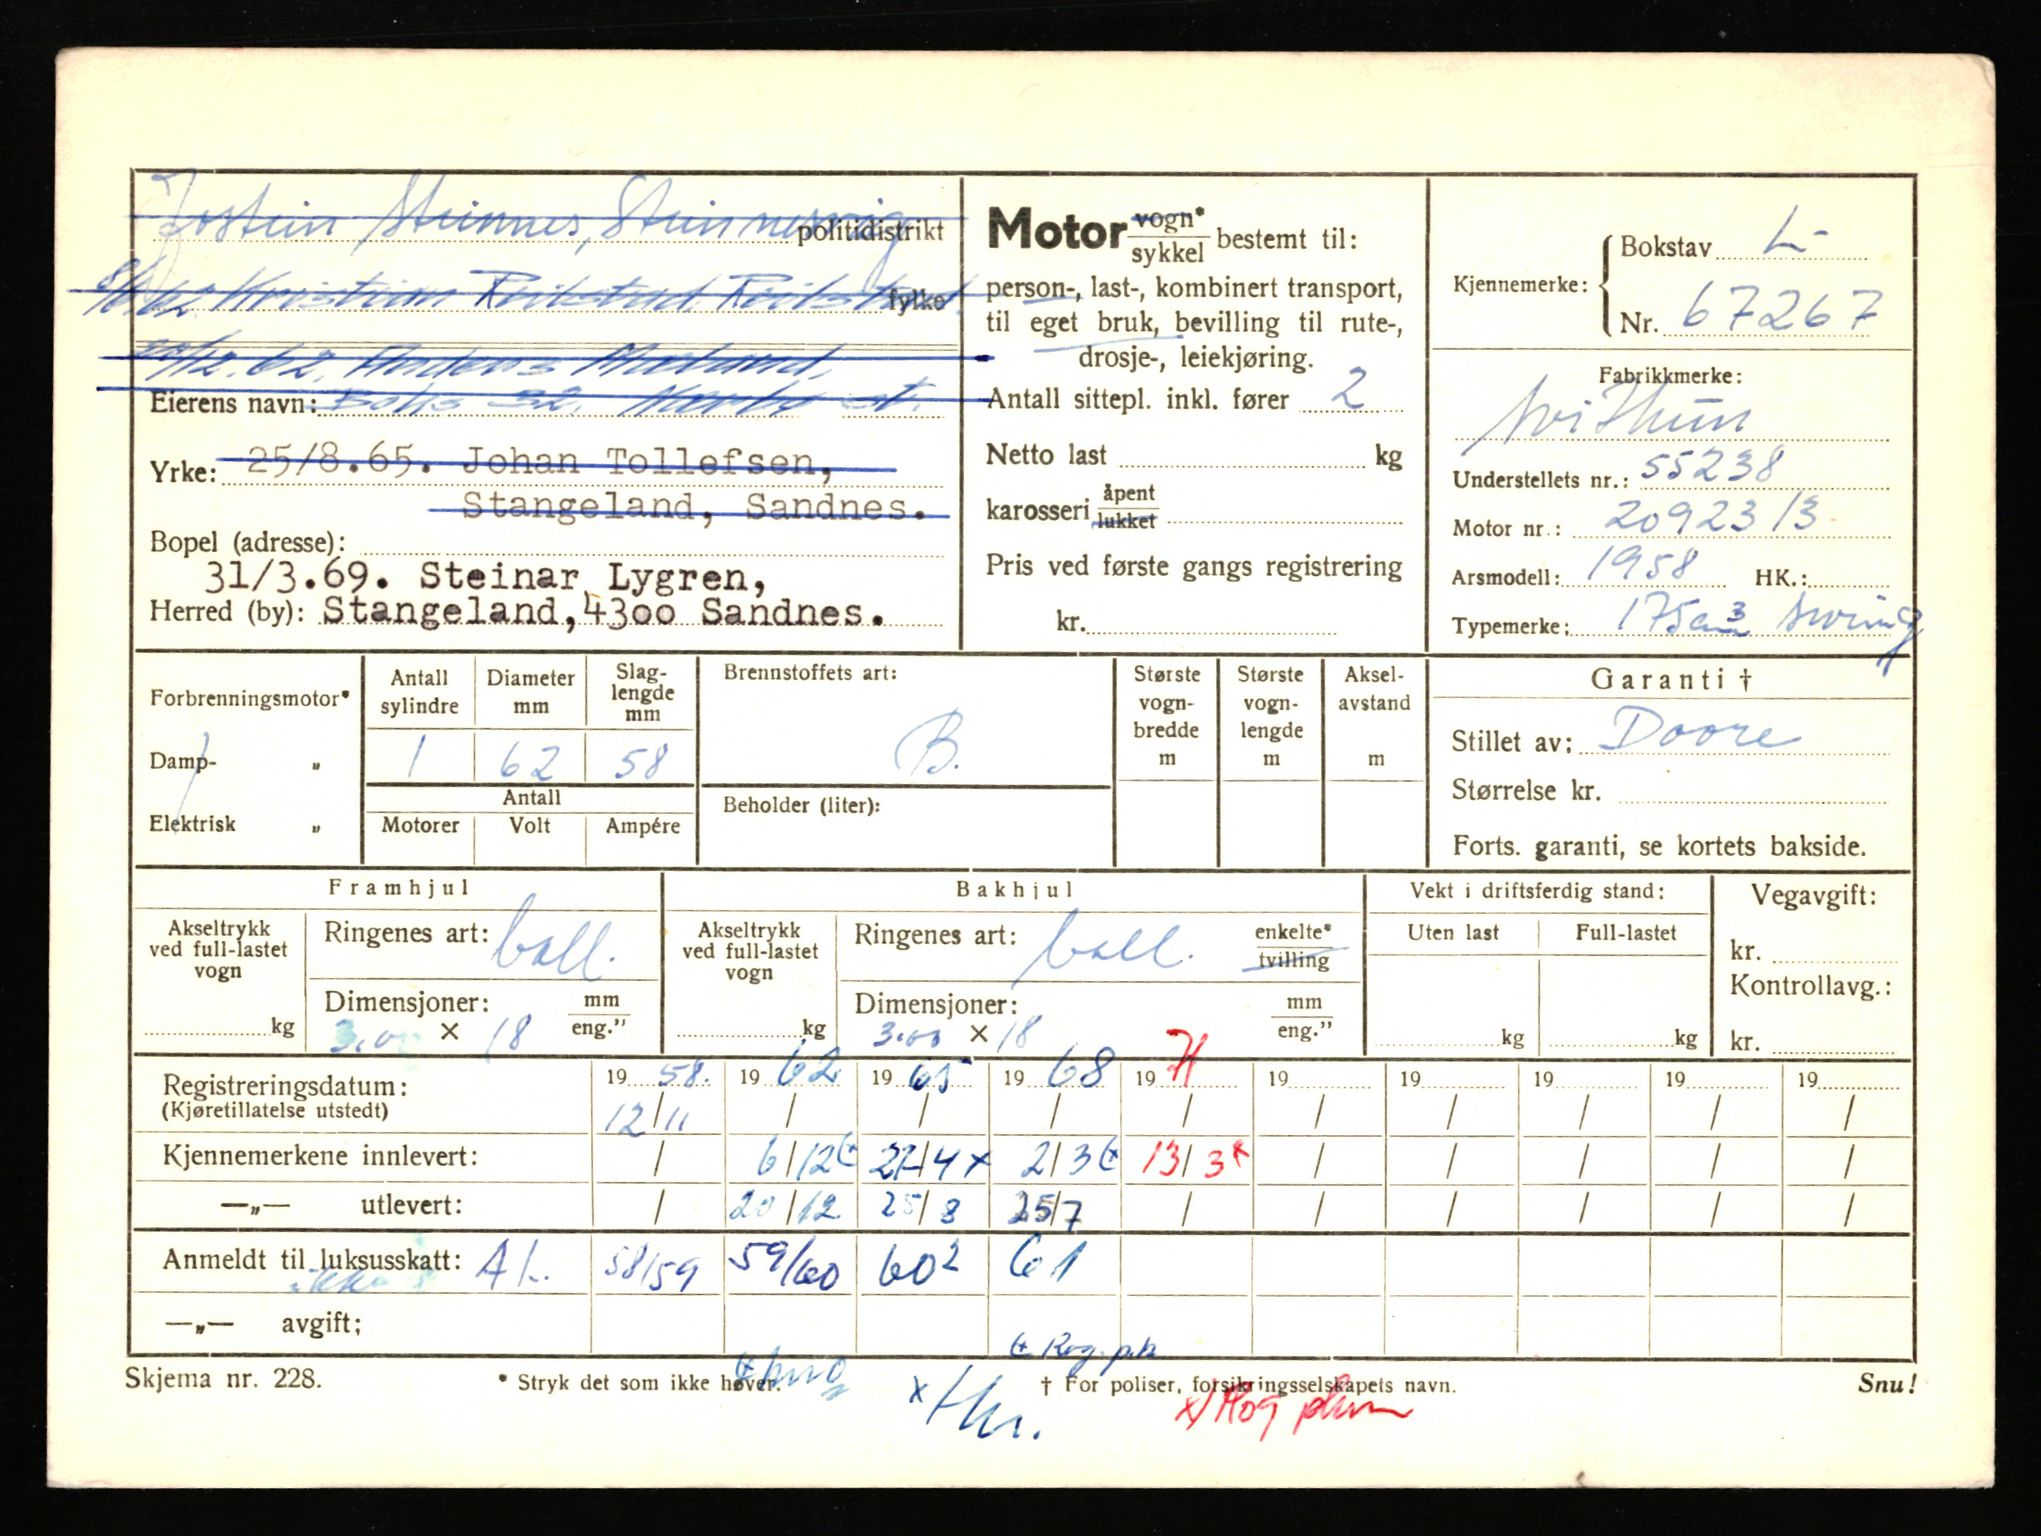 Jostein Steinnes, Steinnesvåg politidistrikt
Kristian Reilstad fylke
20/12.62. Anders Mæland,
Eierens navn: Boks 32. Nærbø st.
Yrke: 25/8.65. Johan Tollefsen,
Stangeland, Sandnes.
Bopel (adresse):
31/3.69. Steinar Lygren,
Herred (by): Stangeland, 4300 Sandnes.
Motor vogn* / sykkel bestemt til:
person-, last-, kombinert transport,
til eget bruk, bevilling til rute-,
drosje-, leiekjøring.
Antall sittepl. inkl. fører 2
Netto last kg
karosseri åpent / lukket
Pris ved første gangs registrering
kr.
Kjennemerke: Bokstav L-
Nr. 67267
Fabrikkmerke:
Svithun
Understellets nr.: 55238
Motor nr.: 20923/3
Arsmodell: 1958 HK.:
Typemerke: 175cm3 swing
Forbrenningsmotor*
Damp- „
Elektrisk „
Antall sylindre Diameter mm Slag-lengde mm
1 62 58
Antall
Motorer Volt Ampére
Brennstoffets art:
B.
Beholder (liter):
Største vogn-bredde m
Største vogn-lengde m
Aksel-avstand m
Garanti †
Stillet av: Doore
Størrelse kr.
Forts. garanti, se kortets bakside.
Framhjul
Akseltrykk ved full-lastet vogn kg
Ringenes art: ball.
Dimensjoner: mm / eng."
3.00 × 18
Bakhjul
Akseltrykk ved full-lastet vogn kg
Ringenes art: ball. enkelte* / tvilling
Dimensjoner: mm / eng."
3.00 × 18
Vekt i driftsferdig stand:
Uten last Full-lastet
kg kg
Vegavgift:
kr.
Kontrollavg.:
kr.
Registreringsdatum: 19 58. 19 62 19 65 19 68 19 71 19 19 19 19 19
(Kjøretillatelse utstedt) 12/11 / / / / / / / / /
Kjennemerkene innlevert: / 6/12 27/4 x 2/3 13/3 x / / / / /
—„— utlevert: / 20/12 25/8 25/7 / / / / / /
Anmeldt til luksusskatt: A L. 58/59 59/60 60² 61
ikke
—„— avgift:
Rog. p.k
Skjema nr. 228. * Stryk det som ikke høver. † For poliser, forsikringsselskapets navn. Snu!